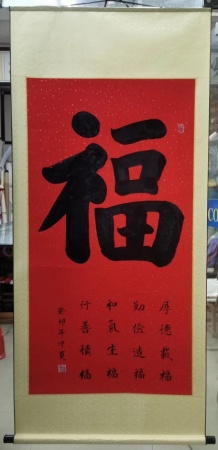 福
厚德載福
勤儉造福
和氣生福
行善積福
癸卯年